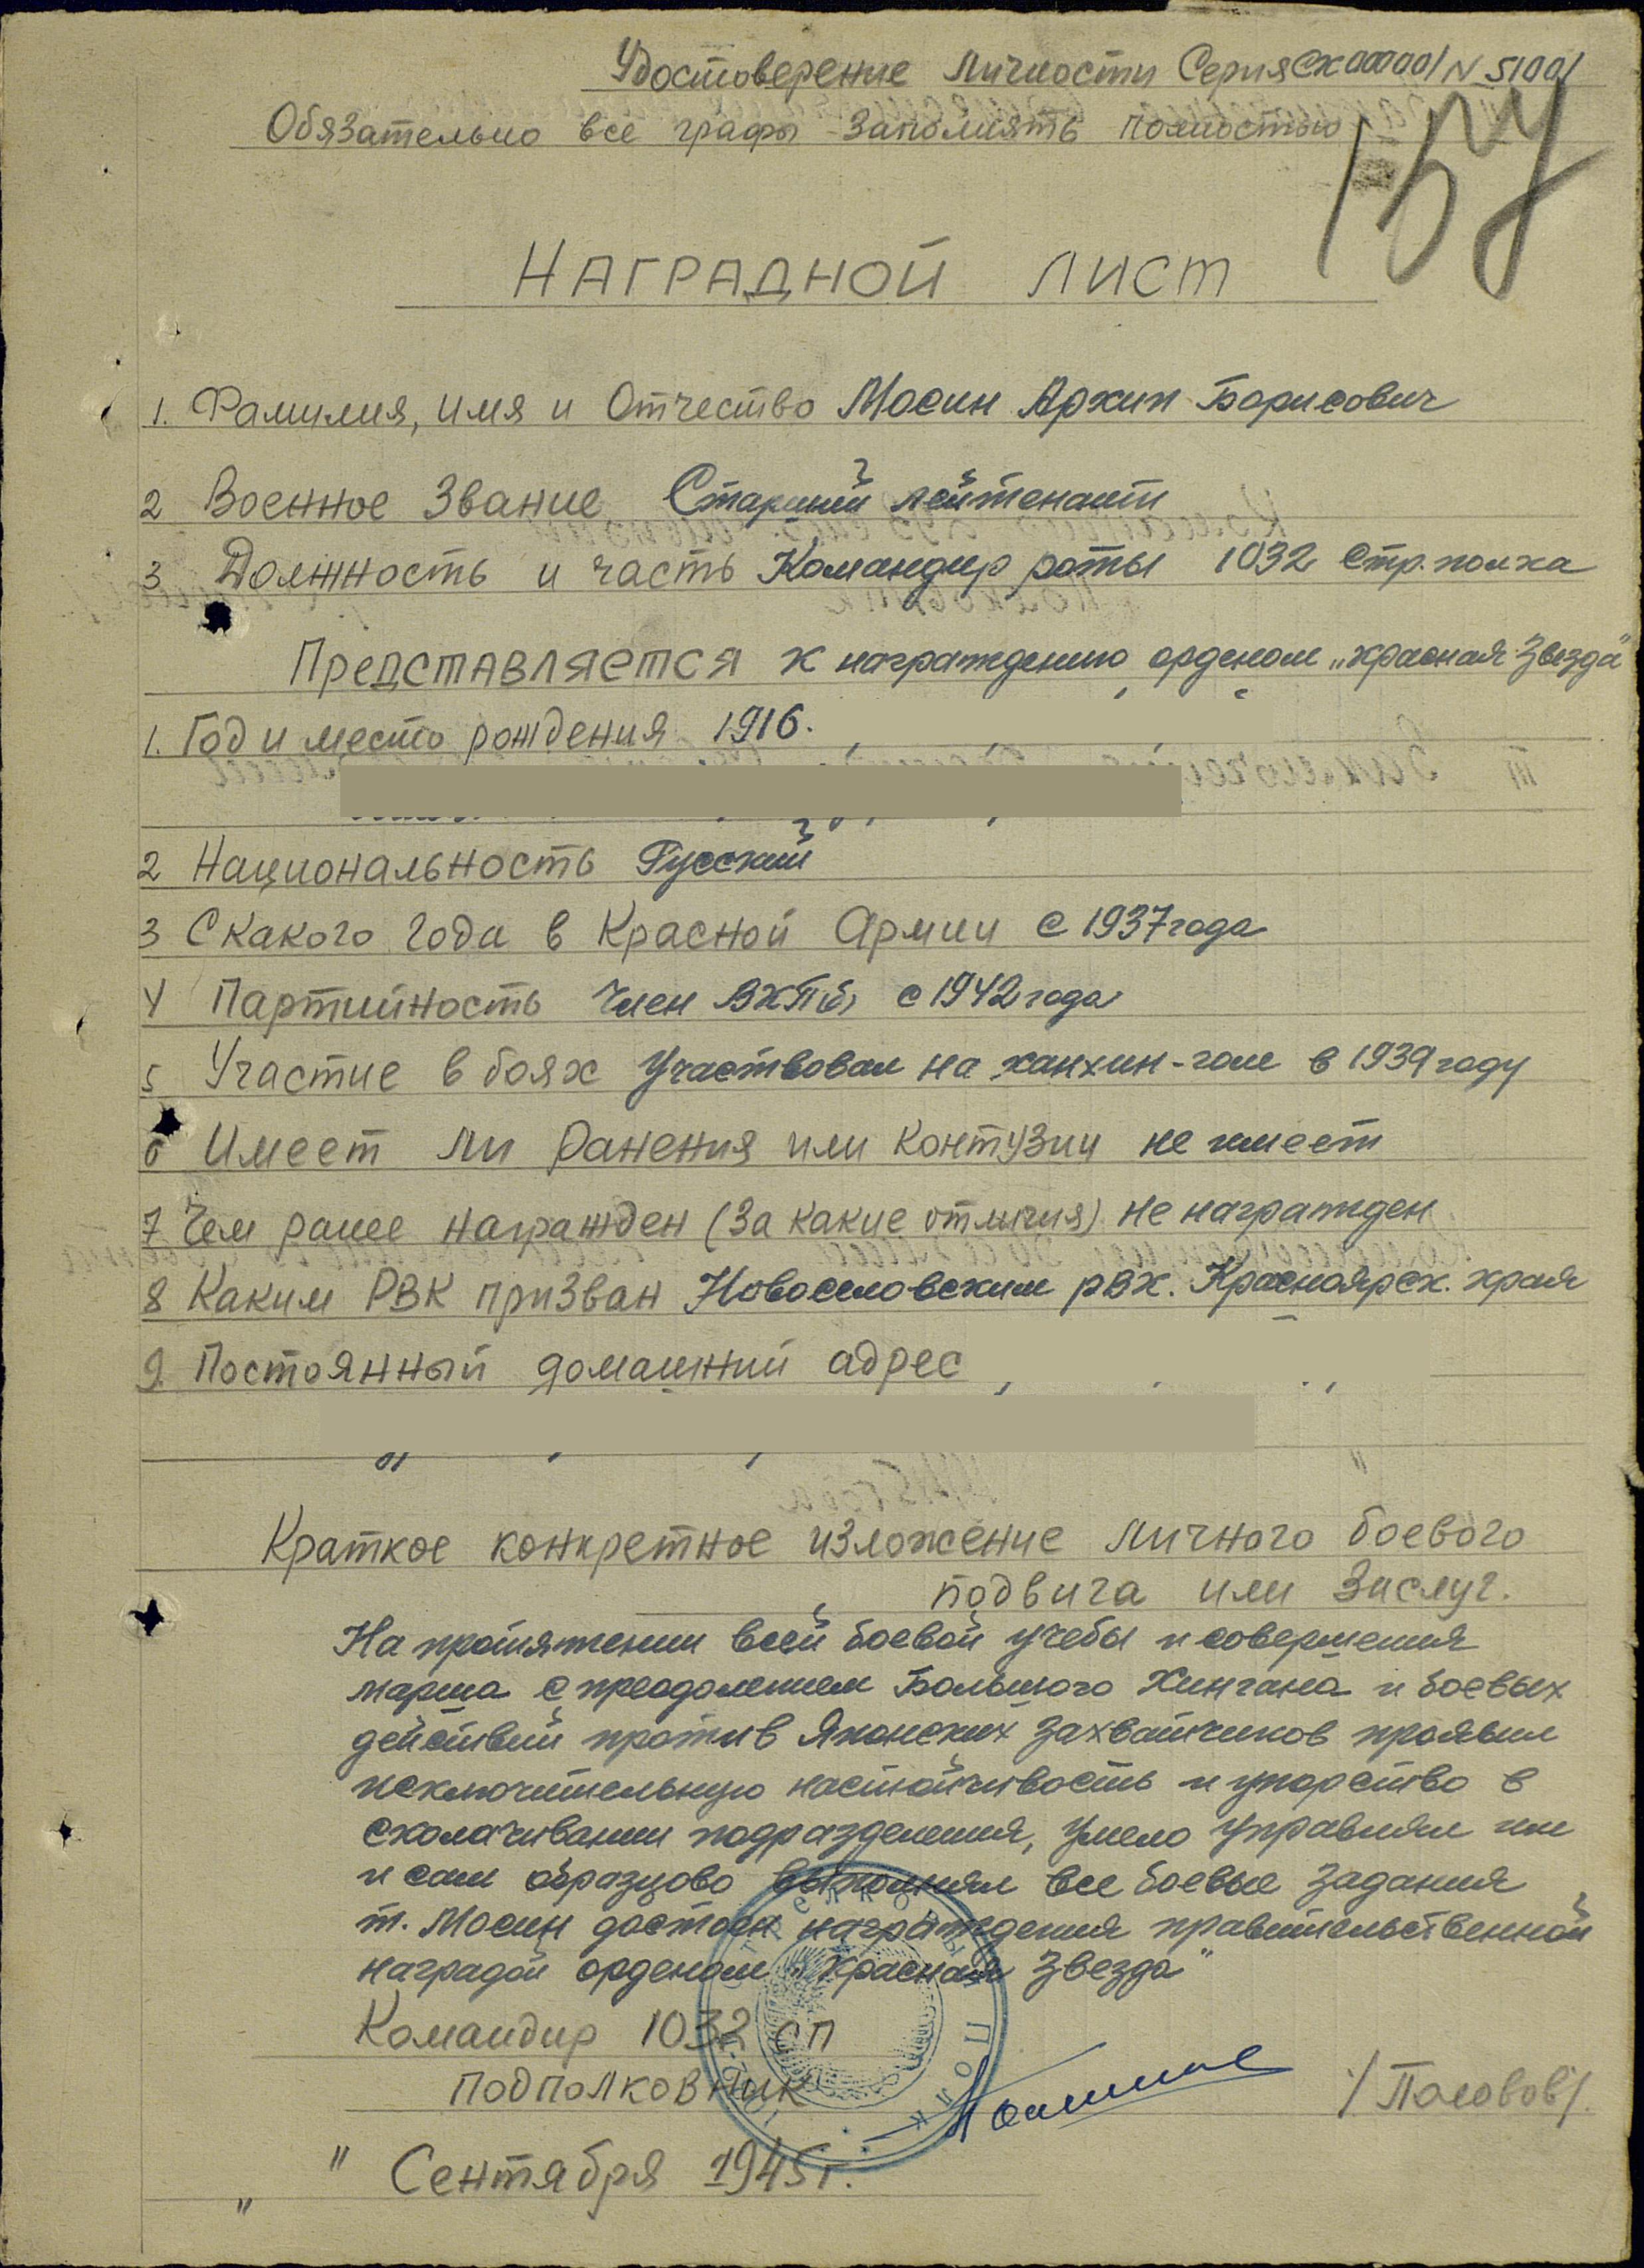 Удостоверение личности Серия СХ 00001 N 51001
Обязательно все графы заполнять полностью
НАГРАДНОЙ ЛИСТ
1. Фамилия, имя и Отчество Мосин Архип Борисович
2 Военное Звание Старший лейтенант
3 Должность и часть Командир роты 1032 Стр. полка
Представляется к награждению орденом „красная Звезда"
1. Год и место рождения 1916.
2 Национальность Русский
3 С какого года в Красной Армии с 1937 года
4 Партийность Член ВКП(б) с 1942 года
5 Участие в боях Участвовал на халхин-голе в 1939 году
6 Имеет ли ранения или контузии не имеет
7 Чем ранее награжден (За какие отличия) не награжден
8 Каким РВК призван Новоселовским рвк. Красноярск. края
9. Постоянный домашний адрес
Краткое конкретное изложение личного боевого
подвига или Заслуг.
На протяжении всей боевой учебы и совершения
марша с преодолением Большого Хингана и боевых
действий против Японских захватчиков проявил
исключительную настойчивость и упорство в
сколачивании подразделения, умело управлял им
и сам образцово выполнял все боевые задания
т. Мосин достоен награждения правительственной
наградой орденом „Красная Звезда"
Командир 1032 сп
подполковник /Половов/.
" " Сентября 1945 г.